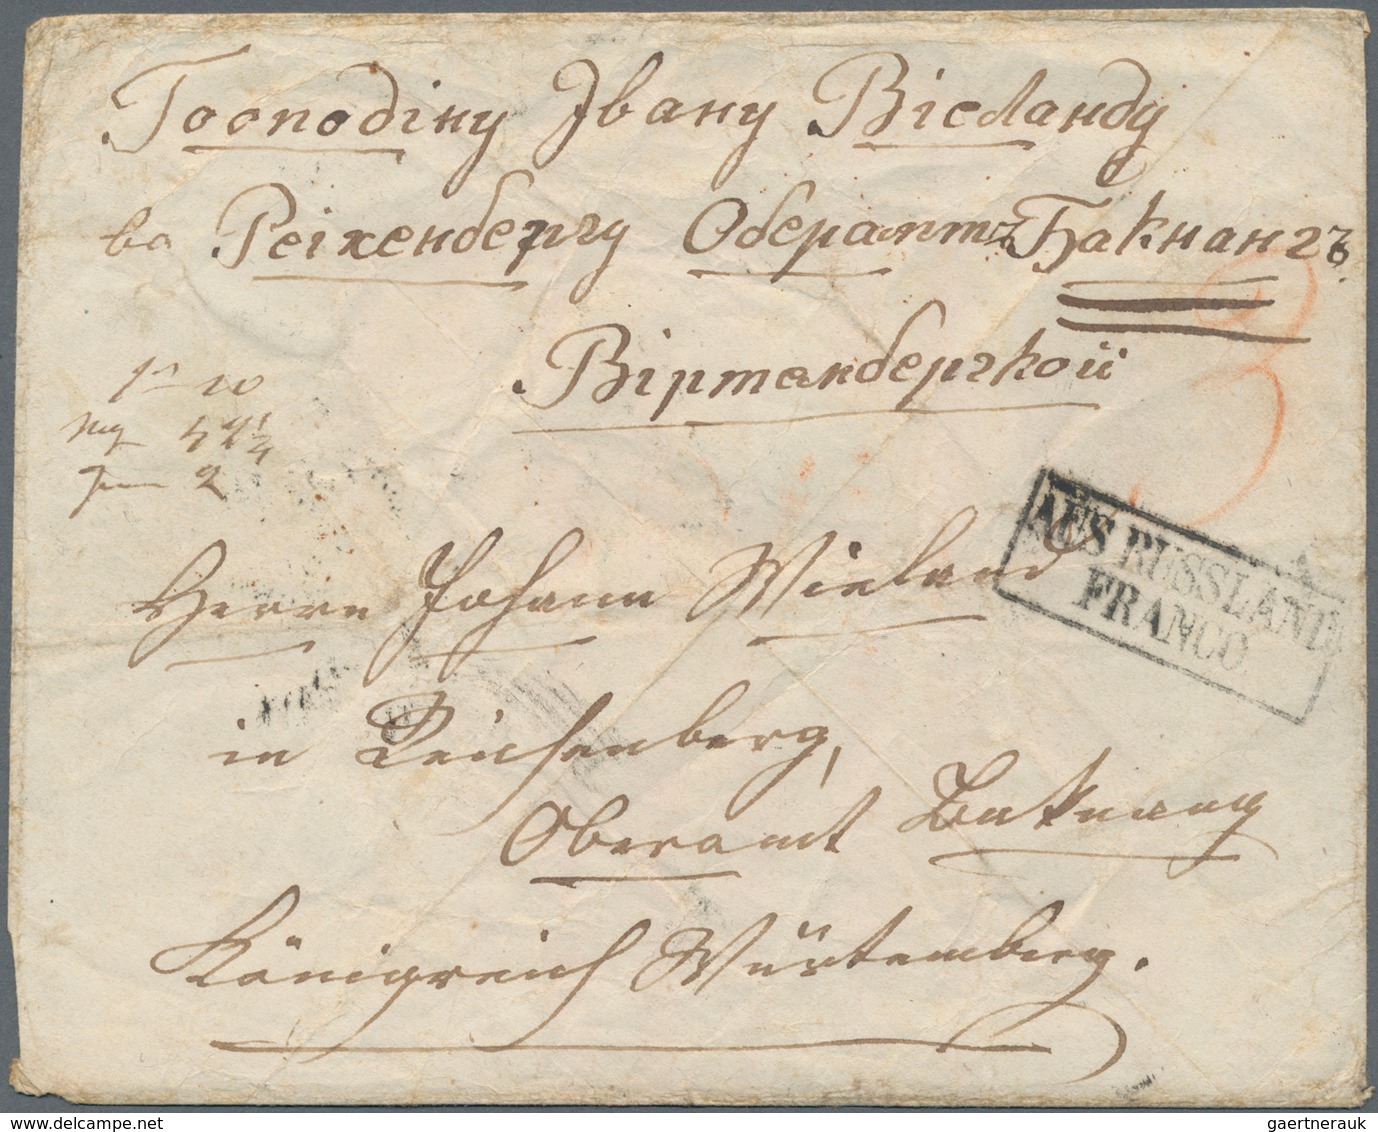 Господіну Івану Віеланду
во Реіхенбергу Оберамтъ Бакнангъ.
Віртембергкой
10
2
3
AUS RUSSLAND
FRANCO
Herrn Johann Wieland
in Reichenberg,
Oberamt Baknang
Königreich Würtemberg.
gaertnerauk